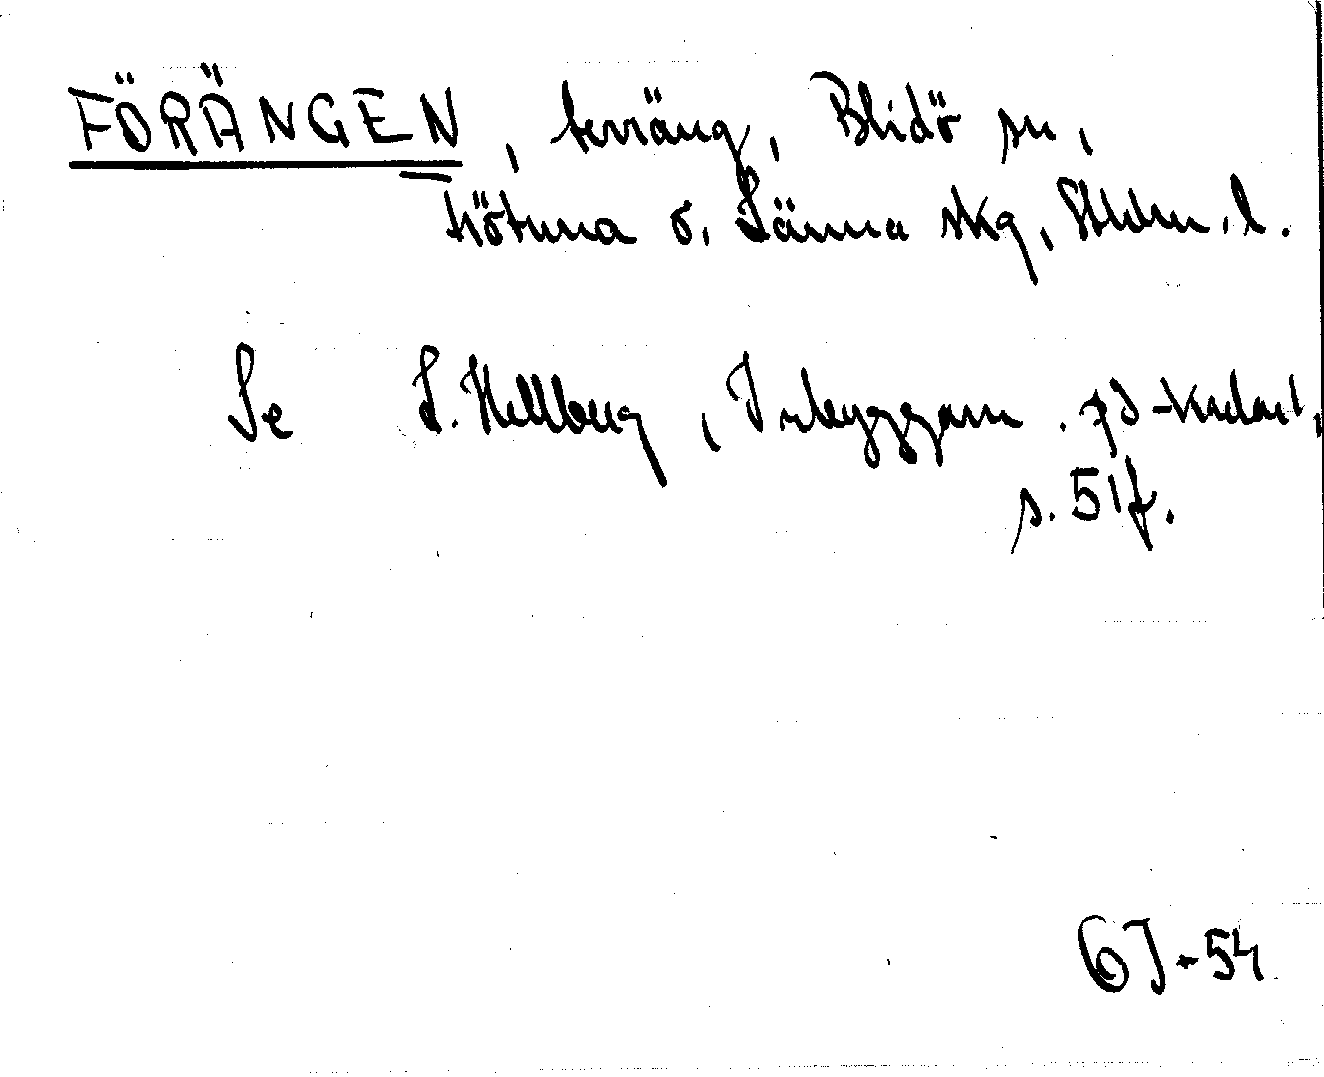 FÖRÄNGEN, terräng, Blidö sn,
Frötuna o. Länna skg, Sthlm. l.
Se L. Hellberg, Inbyggarn.
s. 51 f.
GJ-54